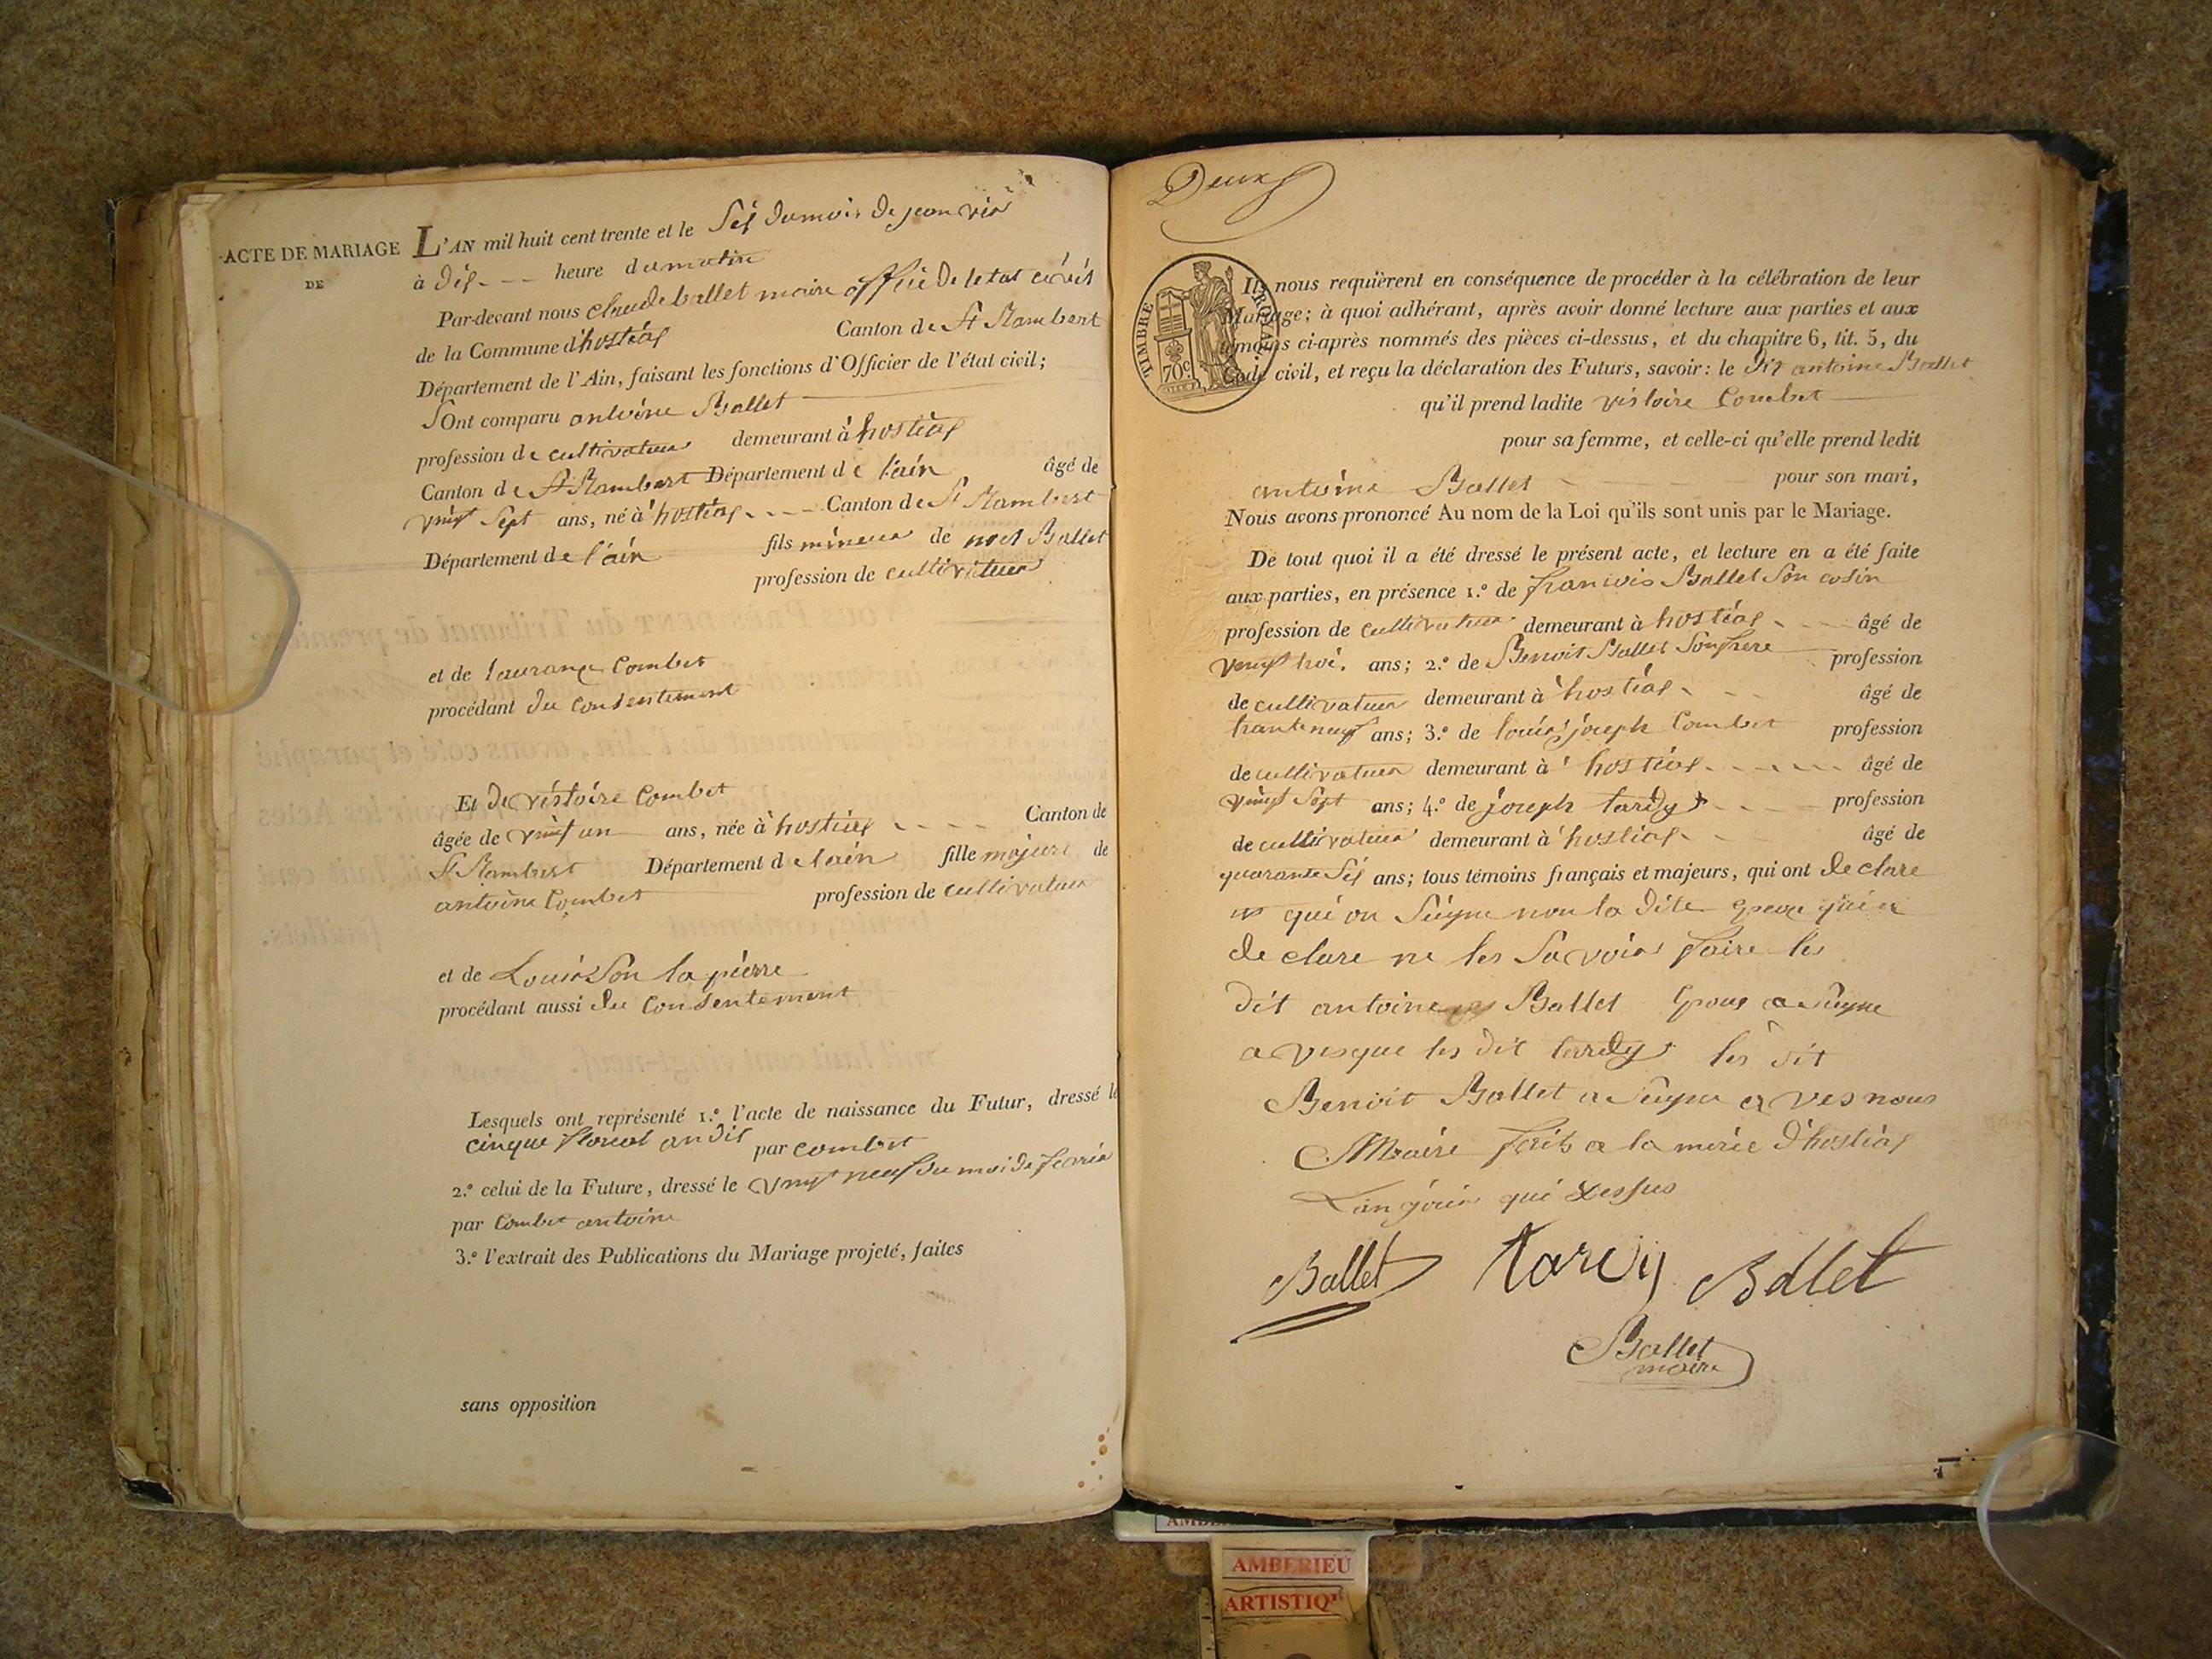 ACTE DE MARIAGE
DE
L'AN mil huit cent trente et le Sis du mois de jeanvié
à dis heure du matin
Par-devant nous claude ballet maire offcié de letat civil
de la Commune d'hostias Canton de St Rambert
Département de l'Ain, faisant les fonctions d'Officier de l'état civil;
Ont comparu antoine Ballet
profession de cultivateur demeurant à hostias
Canton de St Rambert Département de l'ain âgé de
vingt sept ans, né à hostias Canton de St Rambert
Département de l'ain fils mineur de noel Ballet
profession de cultivateur
et de laurance Combet
procédant du consentement
Et de vistoire Combet
âgée de vingt un ans, née à hostias Canton de
St Rambert Département de lain fille majure de
antoine Combet profession de cultivateur
et de Louison la pierre
procédant aussi du consentement
Lesquels ont représenté 1.º l'acte de naissance du Futur, dressé le
cinque floreal an dis par combet
2.º celui de la Future, dressé le vingt neuf du moi de fevrié
par Combet antoine
3.º l'extrait des Publications du Mariage projeté, faites
sans opposition
Deux
TIMBRE ROYAL
70c
Ils nous requièrent en conséquence de procéder à la célébration de leur
Mariage; à quoi adhérant, après avoir donné lecture aux parties et aux
témoins ci-après nommés des pièces ci-dessus, et du chapitre 6, tit. 5, du
Code civil, et reçu la déclaration des Futurs, savoir: le dit antoine Ballet
qu'il prend ladite vistoire Combet
pour sa femme, et celle-ci qu'elle prend ledit
antoine Ballet pour son mari,
Nous avons prononcé Au nom de la Loi qu'ils sont unis par le Mariage.
De tout quoi il a été dressé le présent acte, et lecture en a été faite
aux parties, en présence 1.º de francois Ballet Son cosin
profession de cultivateur demeurant à hostias âgé de
vingt troi ans; 2.º de Benoit Ballet Son frere profession
de cultivateur demeurant à hostias âgé de
trante neuf ans; 3.º de louis joseph Combet profession
de cultivateur demeurant à hostias âgé de
vingt Sept ans; 4.º de joseph tardy profession
de cultivateur demeurant à hostias âgé de
quarante Sis ans; tous témoins français et majeurs, qui ont declare
qui on Seigne non la dite qui a
de clare ne les Savoir faire les
dit antoine Ballet Epous a Seigne
a vesque les dit tardy les dit
Benoit Ballet a Seigne a ves nous
Maire fait a la merie d'hostias
Lan jour qui dessus
Ballet tardy Ballet
Ballet
maire
AMBERIEU
ARTISTIQ